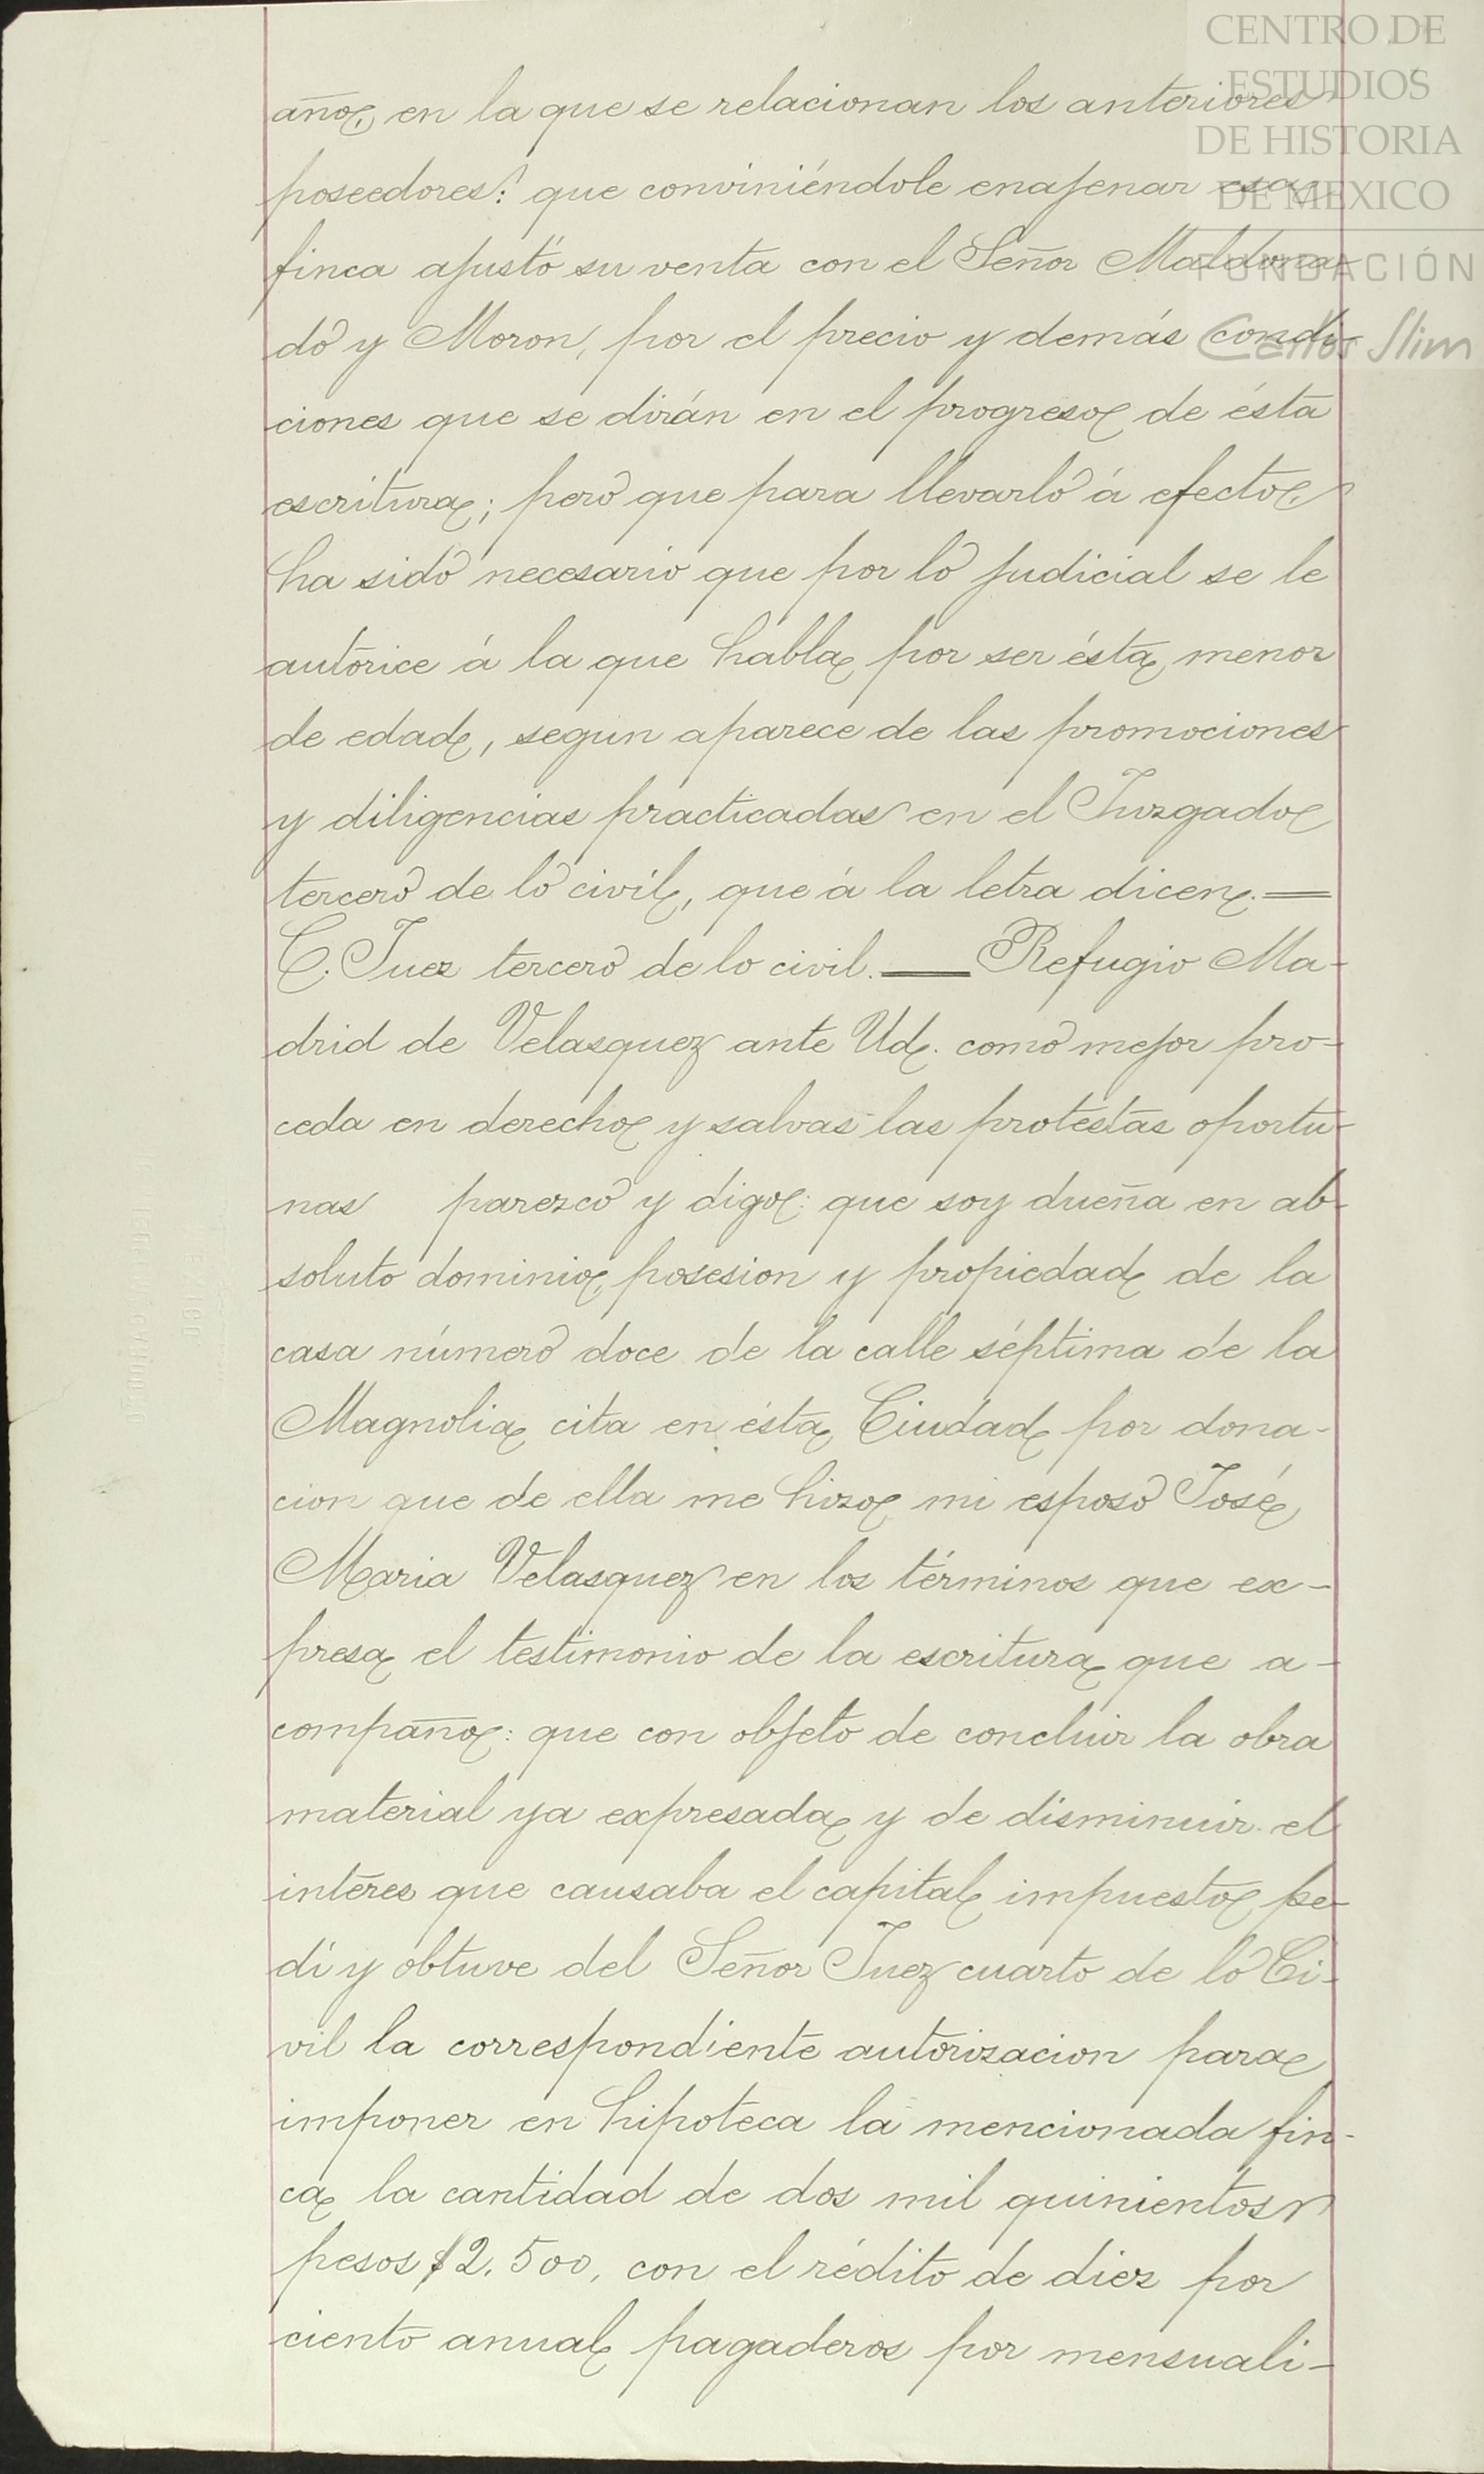 CENTRO DE
ESTUDIOS
DE HISTORIA
DE MEXICO
FUNDACIÓN
Carlos Slim
año, en la que se relacionan los anteriores
poseedores: que conviniéndole enajenar esa
finca ajustó su venta con el Señor Maldona-
do y Moron, por el precio y demás condi-
ciones que se dirán en el progreso de ésta
escritura; pero que para llevarlo á efecto,
ha sido necesario que por lo judicial se le
autorice á la que habla por ser ésta menor
de edad, segun aparece de las promociones
y diligencias practicadas en el Juzgado
tercero de lo civil, que á la letra dicen.=
C. Juez tercero de lo civil.— Refugio Ma-
drid de Velasquez ante Ud. como mejor pro-
ceda en derecho y salvas las protestas oportu-
nas parezco y digo: que soy dueña en ab-
soluto dominio, posesion y propiedad de la
casa número doce de la calle séptima de la
Magnolia cita en ésta Ciudad por dona-
cion que de ella me hizo mi esposo José
Maria Velasquez en los términos que ex-
presa el testimonio de la escritura que a-
compaño: que con objeto de concluir la obra
material ya expresada y de disminuir el
interes que causaba el capital impuesto pe-
dí y obtuve del Señor Juez cuarto de lo Ci-
vil la correspondiente autorizacion para
imponer en hipoteca la mencionada fin-
ca la cantidad de dos mil quinientos
pesos $2.500, con el rédito de diez por
ciento anual pagaderos por mensuali-